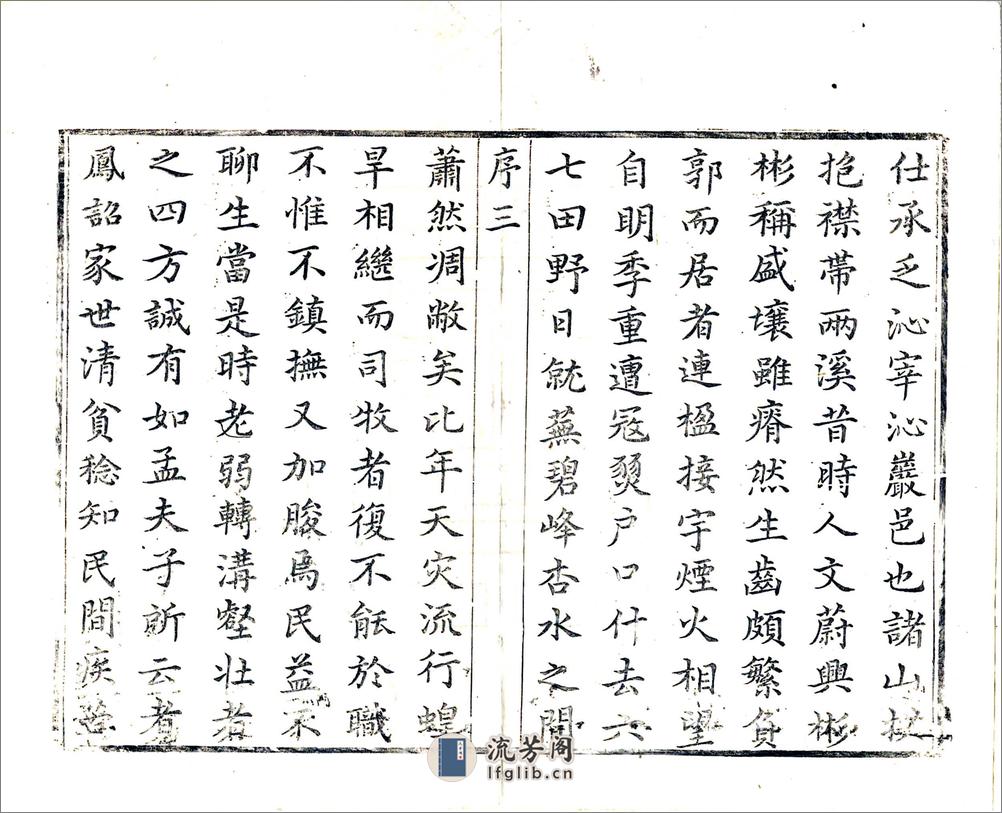 仕承乏沁宰沁巖邑也諸山拱
抱襟帶兩溪昔時人文蔚興彬
彬稱盛壤雖瘠然生齒頗繁負
郭而居者連楹接宇煙火相望
自明季重遭冦燹户口什去六
七田野日就蕪碧峰杏水之間
序三
蕭然凋敝矣比年天灾流行蝗
旱相繼而司牧者復不能於職
不惟不鎮撫又加朘焉民益不
聊生當是時老弱轉溝壑壯者
之四方誠有如孟夫子所云者
鳳詔家世清貧稔知民間疾苦
流芳阁
lfglib.cn